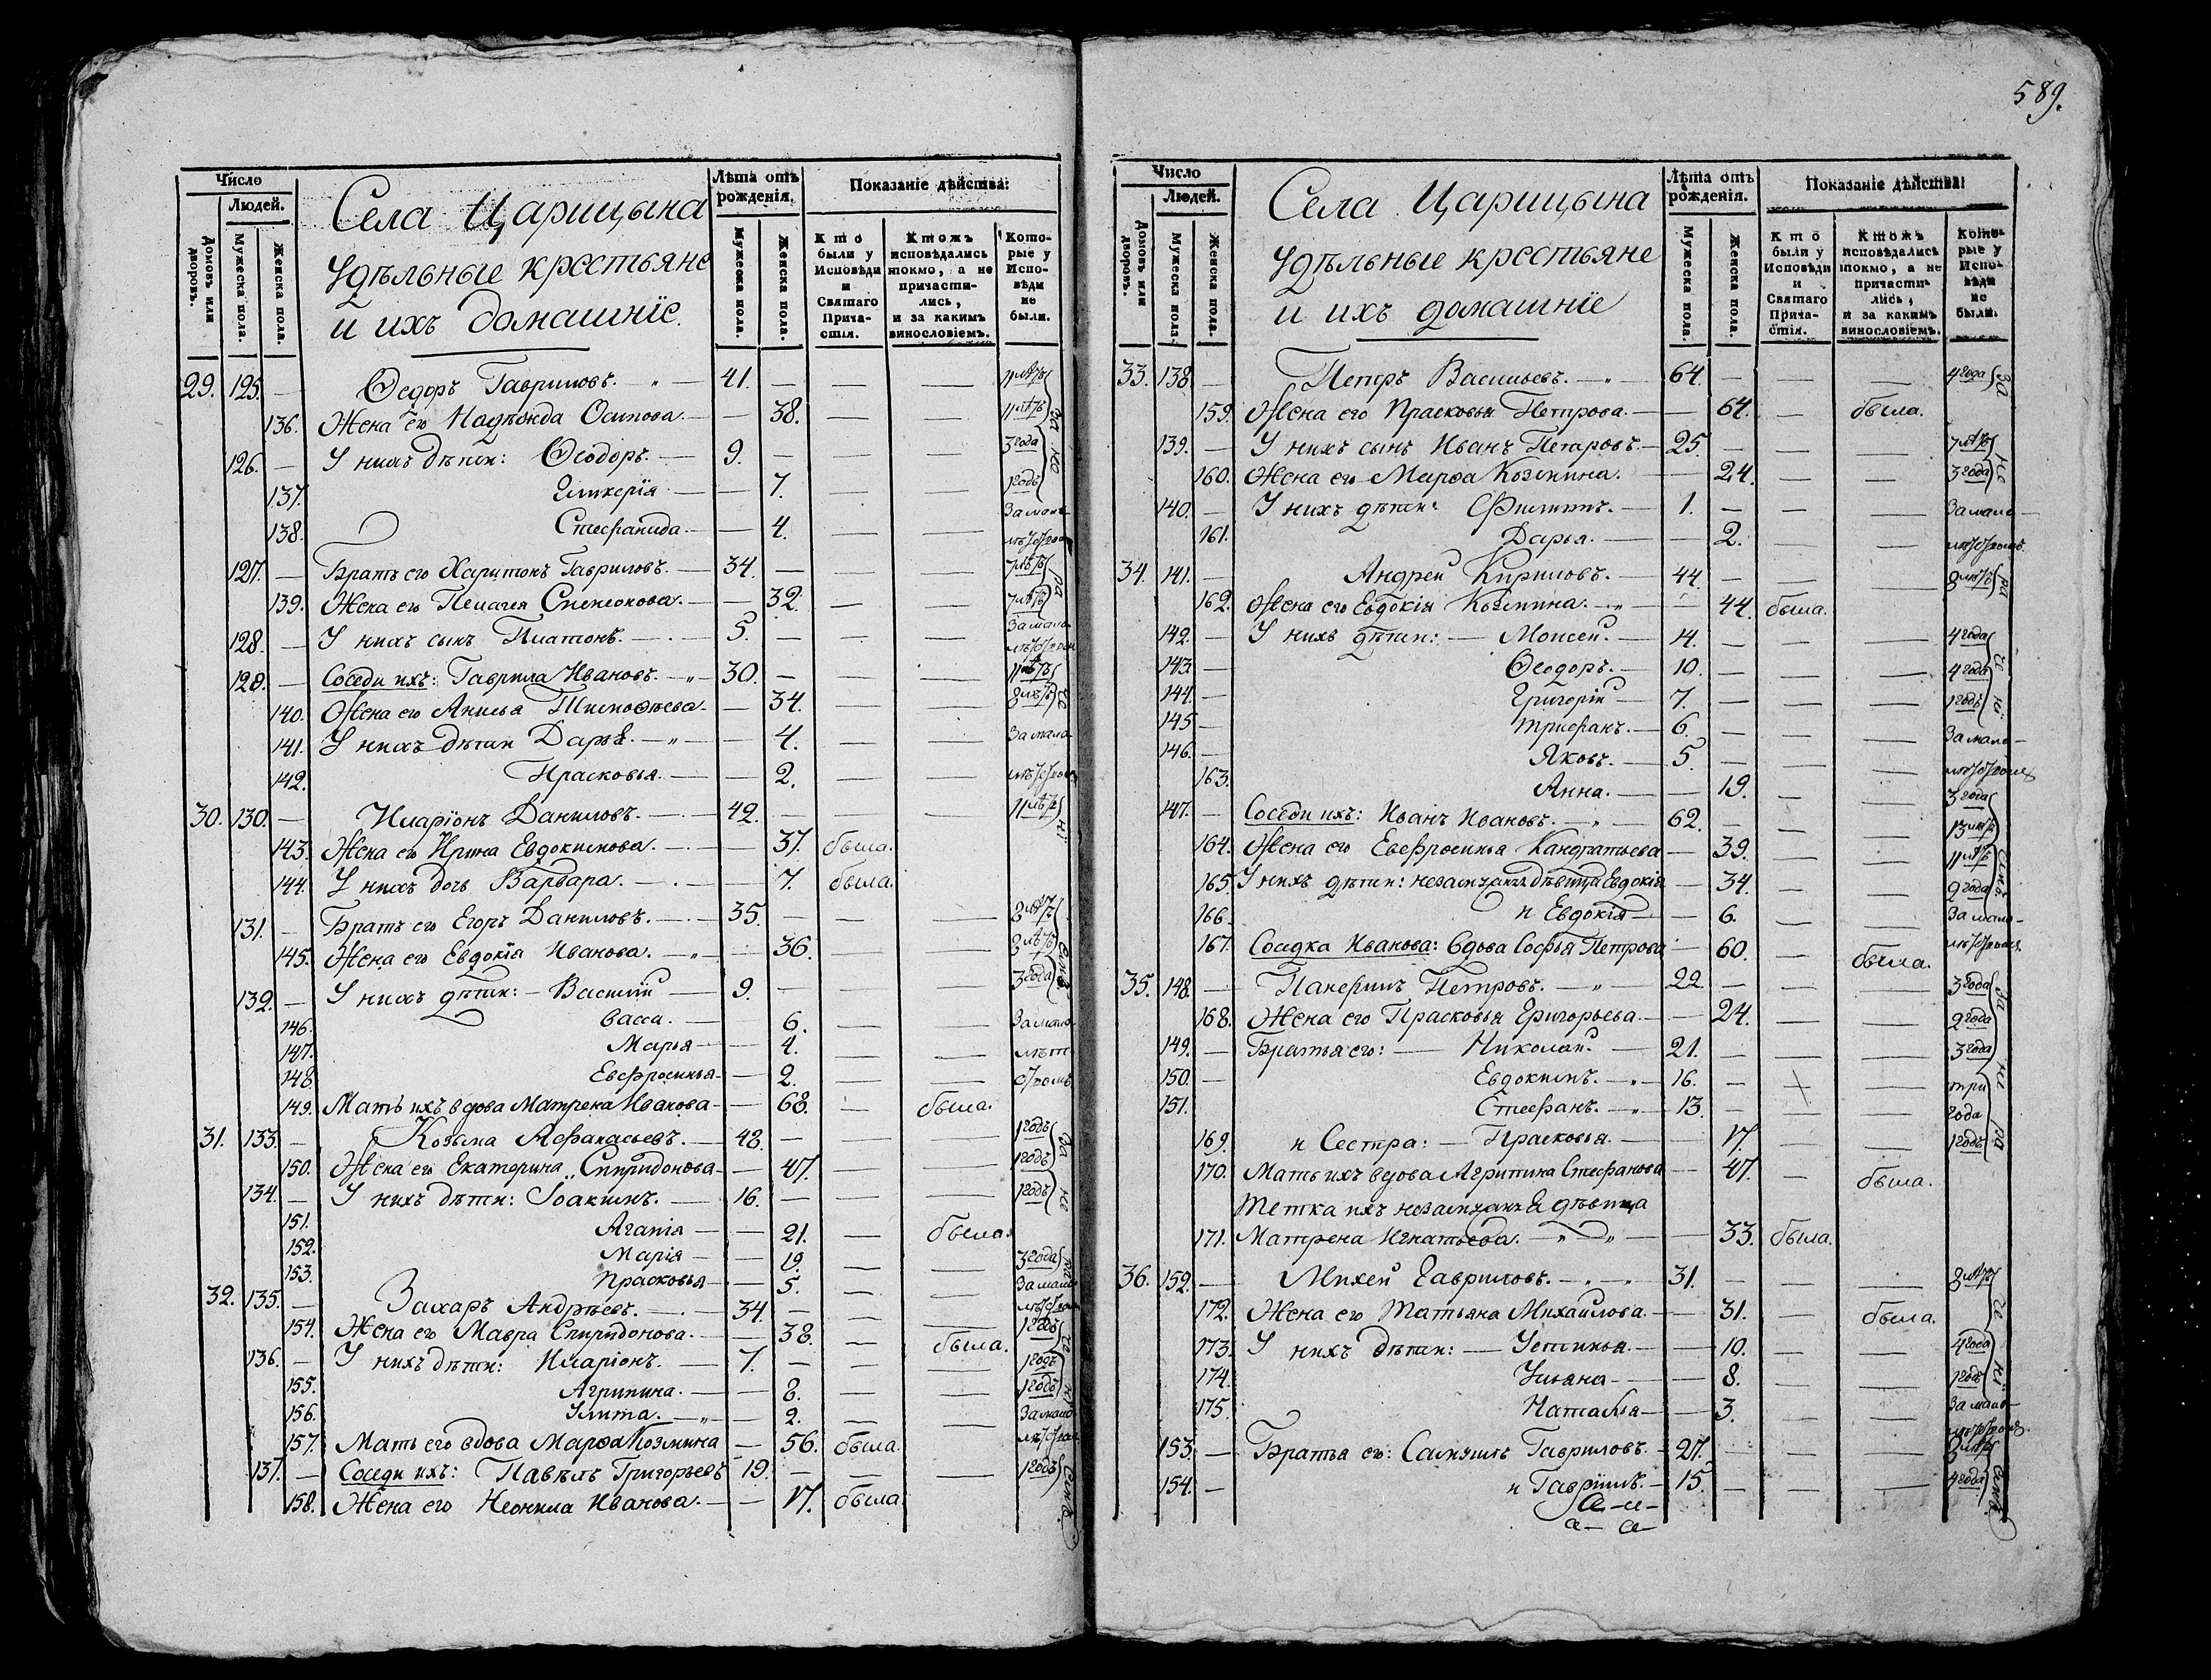 589.
Число
Людей.
Домовъ или дворовъ.
Мужеска пола.
Женска пола.
Села Царицына
Удѣльные крестьяне
и ихъ домашніе.
Лѣта отъ рожденія.
Мужеска пола.
Женска пола.
Показаніе дѣйства:
Кто были у Исповѣди и Святаго Причастія.
Ктожъ исповѣдались токмо, а не причастились, и за какимъ винословіемъ.
Которые у Исповѣди не были.
29. 125. — Ѳедоръ Гавриловъ. — 41. — — — 11 лѣтъ
136. Жена его Надѣжда Осипова — — 38. — — 11 лѣтъ
126. — У нихъ дѣти: Ѳеодоръ. — 9. — — — 3 года
137. Гликерія — — 7. — — 1 годъ
138. Стефанида — — 4. — — За мало
127. — Братъ его Харитонъ Гавриловъ. — 34. — — — 7 лѣтъ
139. Жена его Пелагея Симеонова. — — 32. — — 7 лѣтъ
128. — У нихъ сынъ Платонъ. — 5. — — — За мало
129. — Соседи ихъ: Гаврила Ивановъ. — 30. — — — 11 лѣтъ
140. Жена его Анисья Тимоѳеева — — 34. — — 8 лѣтъ
141. У нихъ дѣти Дарья. — — 4. — — За мало
142. Прасковья. — — 2. — —
30. 130. — Иларіонъ Даниловъ. — 42. — — — 11 лѣтъ
143. Жена его Ирина Евдокимова. — — 37. была.
144. У нихъ дочь Варвара. — — 7. была.
131. — Братъ его Егоръ Даниловъ. — 35. — — — 8 лѣтъ
145. Жена его Евдокія Иванова. — — 36. — — 8 лѣтъ
132. — У нихъ дѣти: — Василій — 9. — — — 3 года
146. Васса. — 6. — — За мало
147. Марья — — 4. — — лѣт
148. Евфросинья — — 2. — — ством
149. Мать ихъ вдова Матрена Иванова — — 68. — была.
31. 133. — Козьма Афанасьевъ. — 48. — — — 1 годъ
150. Жена его Екатерина Спиридонова — — 47. — — 1 годъ
134. — У нихъ дѣти: Іоакимъ. — 16. — — — 1 годъ
151. Агапія — — 21. — была.
152. Марія — — 19. — — 3 года
153. Прасковья — — 5. — — За мало
32. 135. — Захаръ Андрѣевъ. — 34. — — —
154. Жена его Мавра Спиридонова. — — 38. — была. 1 годъ
136. — У нихъ дѣти: Иларіонъ. — 7. — — — 1 годъ
155. Агрипина. — — 8. — — 1 годъ
156. Улита. — — 2. — — За мало
157. Мать его вдова Марѳа Козмина — 56. была.
137. — Соседи ихъ: Павѣлъ Григорьевъ 19. — — — 1 годъ
158. Жена его Неонила Иванова. — — 17. была.
Число
Людей.
Домовъ или дворовъ.
Мужеска пола.
Женска пола.
Села Царицына
Удѣльные крестьяне
и ихъ домашніе
Лѣта отъ рожденія.
Мужеска пола.
Женска пола.
Показаніе дѣйства:
Кто были у Исповѣди и Святаго Причастія.
Ктожъ исповѣдались токмо, а не причастились, и за какимъ винословіемъ.
Которые у Исповѣди не были.
33. 138. — Петръ Васильевъ. — 64. — — — 4 года
159. Жена его Прасковья Петрова. — — 64. — была.
139. — У нихъ сынъ Иванъ Петровъ. — 25. — — — 7 лѣтъ
160. Жена его Марѳа Козмина. — — 24. — — 3 года
140. — У нихъ дѣти: Филиппъ. — 1. — — — За мало
161. Дарья. — — 2. — — лѣтством.
34. 141. — Андрей Кириловъ. — 44. — — — 8 лѣтъ
162. Жена его Евдокія Козмина. — — 44. была.
142. У нихъ дѣти: — Моисей. — 14. — — — 4 года
143. — Ѳеодоръ. — 10. — — — 4 года
144. — Григорій — 7. — — — 1 годъ
145 — Трифанъ. — 6. — — — За мало
146. — Яковъ. — 5. — — —
163. Анна. — — 19. — — 3 года
147. — Соседи ихъ: Иванъ Ивановъ. — 62. — — — 13 лѣтъ
164. Жена его Евфросинья Кандратьева — 39. — — 11 лѣтъ
165. У нихъ дѣти: незамужняя дѣвица Евдокія — 34. — — 2 года
166. и Евдокія — — 6. — — За мало
167. Соседка Иванова: вдова Софья Петрова — 60. — была.
35. 148. — Панфилъ Петровъ. — 22. — — — 3 года
168. Жена его Прасковья Григорьева. — — 24. — — 2 года
149. — Братья его: — Николай. — 21. — — — 3 года
150. — Евдокимъ. — 16. — — — три
151. Стефанъ. — 13. — — — года
169. и Сестра: — Прасковья. — — 17. — — 1 годъ
170. Мать ихъ вдова Агрипина Стефанова — 47. — была.
Тетка ихъ незамужняя дѣвица
171. Матрена Игнатьева. — — 33. была.
36. 152. — Михей Гавриловъ. — 31. — — — 8 лѣтъ
172. Жена его Татьяна Михайлова. — — 31. — была.
173. У нихъ дѣти: — Устинья. — — 10. — — 4 года
174. Ульяна — — 8. — — 1 годъ
175. Наталья — — 3. — — За мало
153. — Братья его: Самуилъ Гавриловъ. — 27. — — — 8 лѣтъ
154. — и Гавріилъ. — 15. — — — 4 года